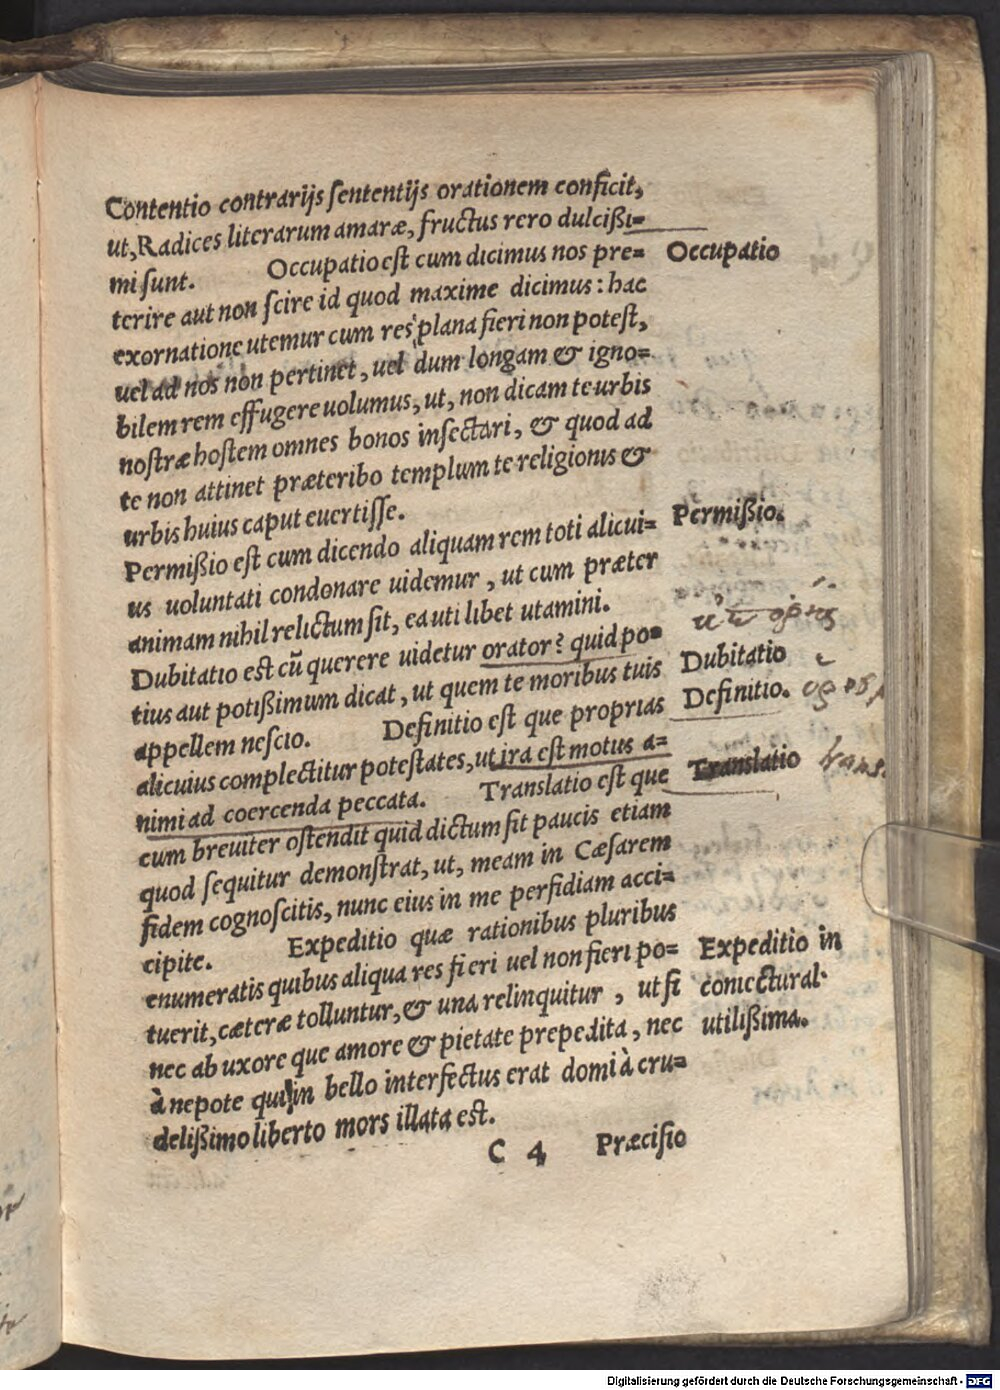 Contentio contrarijs sententijs orationem conficit,
ut, Radices literarum amaræ, fructus rero dulcißi=
mi sunt. Occupatio est cum dicimus nos pre=
Occupatio
terire aut non scire id quod maxime dicimus: hac
exornatione utemur cum res plana fieri non potest,
uel ad nos non pertinet, uel dum longam & igno=
bilem rem effugere uolumus, ut, non dicam te urbis
nostræ hostem omnes bonos insectari, & quod ad
te non attinet præteribo templum te religionis &
urbis huius caput euertisse.
Permißio est cum dicendo aliquam rem toti alicui=
Permißio.
us uoluntati condonare uidemur, ut cum præter
animam nihil relictum sit, ea uti libet utamini.
Dubitatio est cũ querere uidetur orator? quid po=
Dubitatio
tius aut potißimum dicat, ut quem te moribus tuis
appellem nescio. Definitio est que proprias
Definitio.
alicuius complectitur potestates, ut ira est motus a=
nimi ad coercenda peccata. Translatio est que
Translatio
cum breuiter ostendit quid dictum sit paucis etiam
quod sequitur demonstrat, ut, meam in Cæsarem
fidem cognoscitis, nunc eius in me perfidiam acci=
cipite. Expeditio quæ rationibus pluribus
enumeratis quibus aliqua res fieri uel non fieri po=
Expeditio in
coniectural
utilißima.
tuerit, cæteræ tolluntur, & una relinquitur, ut si
nec ab uxore que amore & pietate prepedita, nec
à nepote qui in bello interfectus erat domi à cru=
delißimo liberto mors illata est.
C 4 Præcisio
Digitalisierung gefördert durch die Deutsche Forschungsgemeinschaft - DFG